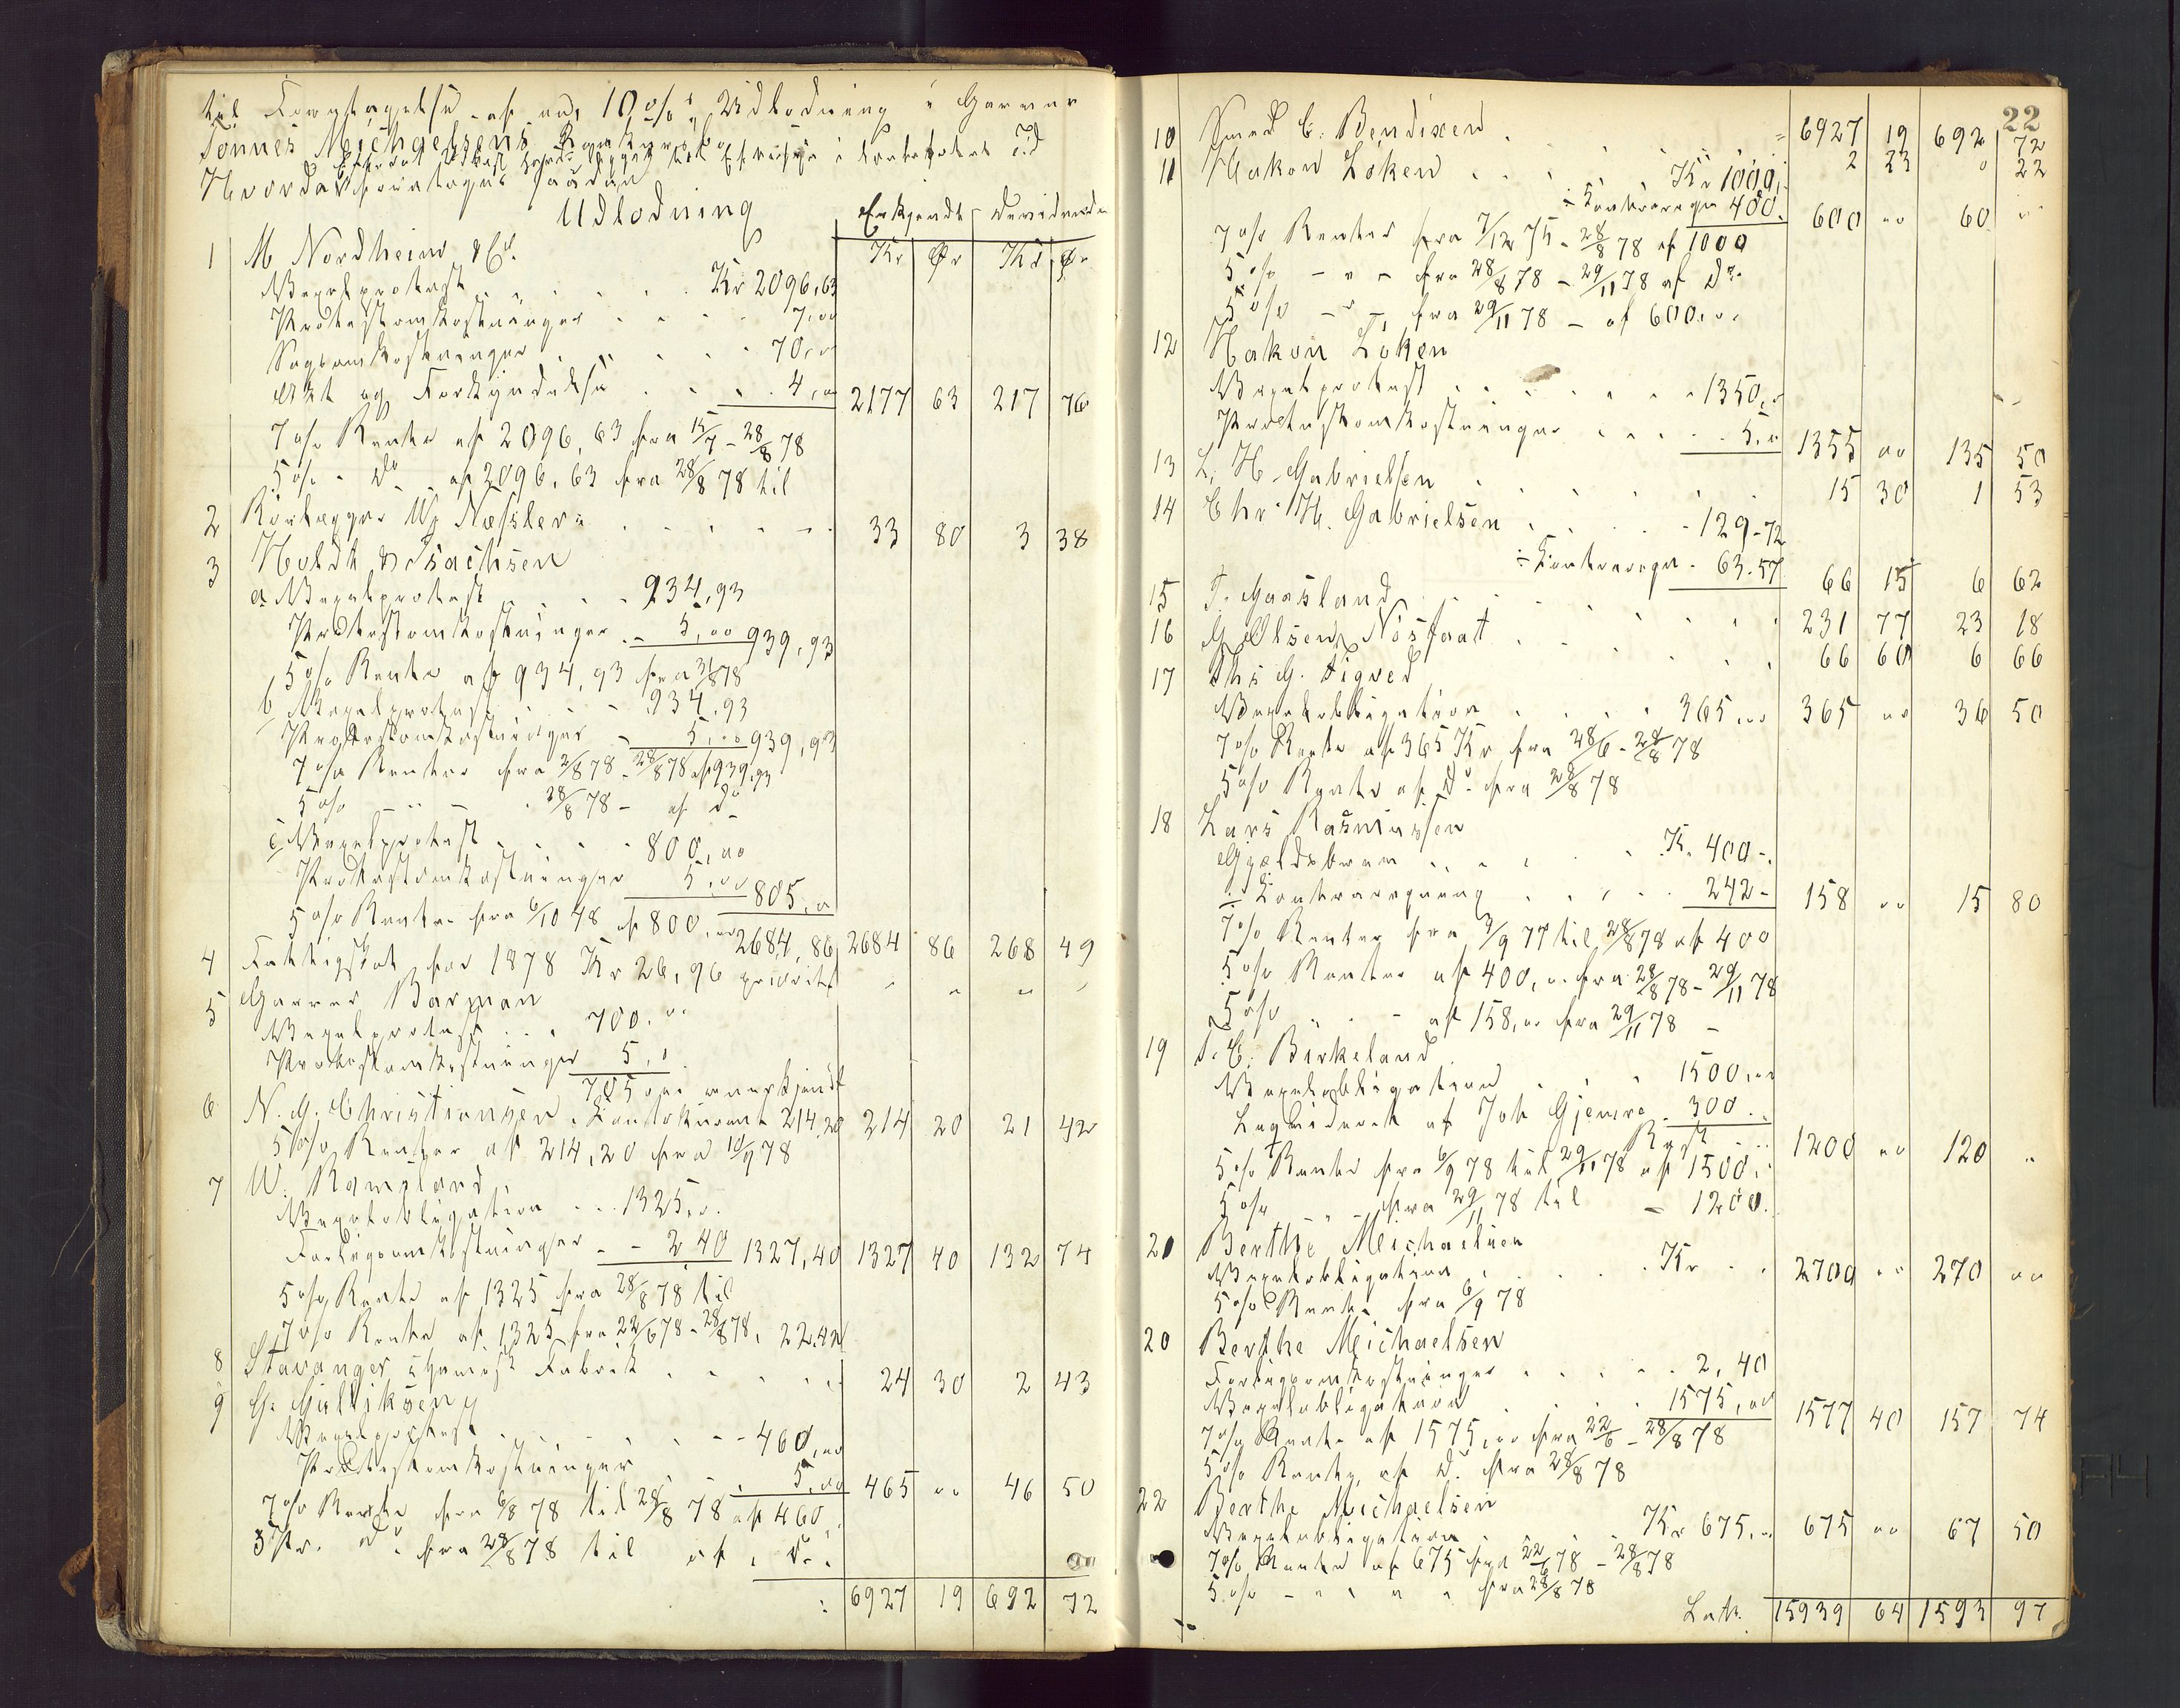 til Foretagelse af and. 10 o/o's Udlodning i Garver
Tønnes Meichaelsens Konkursbo
Efter at Udkast havde ligget til Eftersyn i lovbefalet Tid
Hvorda foretages saadan
Udlodning
Erkjendt Dividende
Kr Ør Kr Ør
1 M Nordheim & Co.
Vexelprotest . . . . Kr 2096,63
Protestomkostninger . . . 7,00
Sagsomkostninger . . . . 70,00
Akt og Forkyndelse . . . . 4,00 2177 63 217 76
7 o/o Rente af 2096,63 fra 15/7 - 28/8 78
5 o/o - Do - af 2096,63 fra 28/8 78 til
2 Rørlægger W. Næsler . . . . . 33 80 3 38
3 Holdt & Isachsen
a Vexelprotest . . . . 934,93
Protestomkostninger - 5,00 939,93
5 o/o Rente af 934,93 fra 31/8 78
b Vexelprotest . . . 934,93
Protestomkostninger - 5,00 939,93
7 o/o Renter fra 2/8 78 - 28/8 78 af 939,93
5 o/o - " - . 28/8 78 - af do
c Vexelprotest . . . . 800,00
Protestomkostninger 5,00 805,00
5 o/o Rente fra 6/10 78 af 800,00 2684,86 2684 86 268 49
4 Fattigskat for 1878 Kr 26,96 priorit " " " "
5 Garver Barman
Vexelprotest . . . 700,00
Protestomkostninger 5,0
705 ei anerkjendt
6 N. G. Christiansen. Contokurant 214,20 214 20 21 42
5 o/o Renter af 214,20 fra 10/9 78
7 W. Ramsland
Vexelobligation . . . 1325,0.
Forligsomkostninger - - 2 40 1327,40 1327 40 132 74
5 o/o Rente af 1325 fra 28/8 78 til
7 o/o Rente af 1325 fra 22/6 78 - 28/8 78, 22.42
8 Stavanger chemisk Fabrik . . . . . 24 30 2 43
9 G. Gulliksen
Vexelprotest . . . . . . 460,00
Protestomkostninger . . . 5,00 465 00 46 50
7 o/o Rente fra 6/8 78 til 28/8 78 af 460
5 Pr. do. fra 28/8 78 til af . do.
: 6927 19 692 72
22
= 6927 19 692 72
10 Smed C. Bendixen . . . . . . 2 23 0 22
11 Hakon Løken . . . . Kr 1000,
÷ Contraregn 400. 600 00 60 "
7 o/o Renter fra 7/12 75 - 28/8 78 af 1000
5 o/o - " - fra 28/8 78 - 29/11 78 af Do
5 o/o - " - fra 29/11 78 - af 600,00
12 Hakon Løken
Vexelprotest . . . . . . 1350,0
Protestomkostninger . . . . 5.0 1355 00 135 50
13 L. H. Gabrielsen . . . . . . 15 30 1 53
14 Chr. H. Gabrielsen . . . . . 129-72
÷ Contraregn. 63.57 66 15 6 62
15 T. Maasland . . . . . . 231 77 23 18
16 G. Olsen Nøsfaat . . . . . . 66 60 6 66
17 Ths G. Tigved
Vexelobligation . . . . 365,00 365 00 36 50
7 o/o Rente af 365 Kr fra 28/6 - 28/8 78
5 o/o Rente af Do fra 28/8 78
18 Lars Rasmussen
Gjældsbrev . . . . . K. 400-.
÷ Contraregning . . . . 242- 158 00 15 80
7 o/o Renter fra 3/9 77 til 28/8 78 af 400
5 o/o Renter af 400,0. fra 28/8 78 - 29/11 78
5 o/o . . - af 158,00 fra 29/11 78 -
19 T. C. Birkeland
Vexelobligation . . . . 1500,00
Liqvideret af Joh Gjemre . 300..
Rest 1200 00 120 "
5 o/o Rente fra 6/9 78 til 29/11 78 af 1500.
5 o/o " - fra 29/11 78 til - 1200.
20 Berthe Meichaelsen
Vexelobligation . . . . Kr . . 2700 00 270 00
5 o/o Rente fra 6/9 78
20 Berthe Meichaelsen
Forligsomkostninger . . . . 2,40
Vexelobligation . . . 1575,00 1577 40 157 74
7 o/o Rente af 1575,00 fra 22/6 - 28/8 78
5 o/o Rente, af Do. fra 28/8 78
22 Berthe Meichaelsen
Vexelobligation . . . . Kr 675,00 675 00 67 50
7 o/o Rente af 675 fra 22/6 78 - 28/8 78
5 o/o - " " " fra 28/8 78
Lat. 15939 64 1593 97